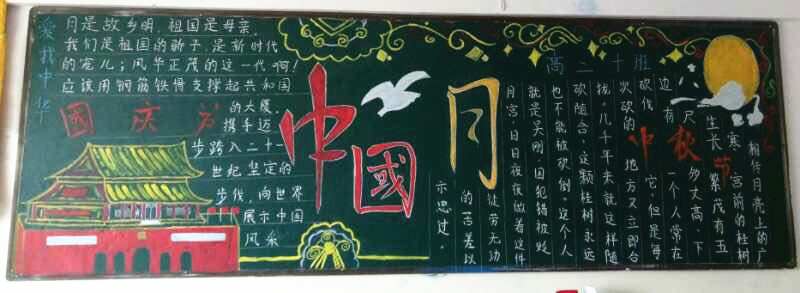 爱我中华
月是故乡明,祖国是母亲。
我们是祖国的骄子,是新时代
的宠儿;风华正茂的这一代啊!
应该用钢筋铁骨支撑起共和国
的大厦,
國庆节
携手迈
步跨入二十一
世纪坚定的
步伐,向世界
展示中国
风采
中國月
高二十班
中秋节
相传月亮上的广
寒宫前的桂树
生长繁茂有五
尺多丈高,下
边有一个人常在
砍伐它,但是每
次砍的地方又立即合
拢,几十年来就这样随
砍随合,这颗桂树永远
也不能被砍倒。这个人
就是吴刚,因犯错被贬
月宫,日日夜夜做着这件
徒劳无功
的苦差以
示思过。